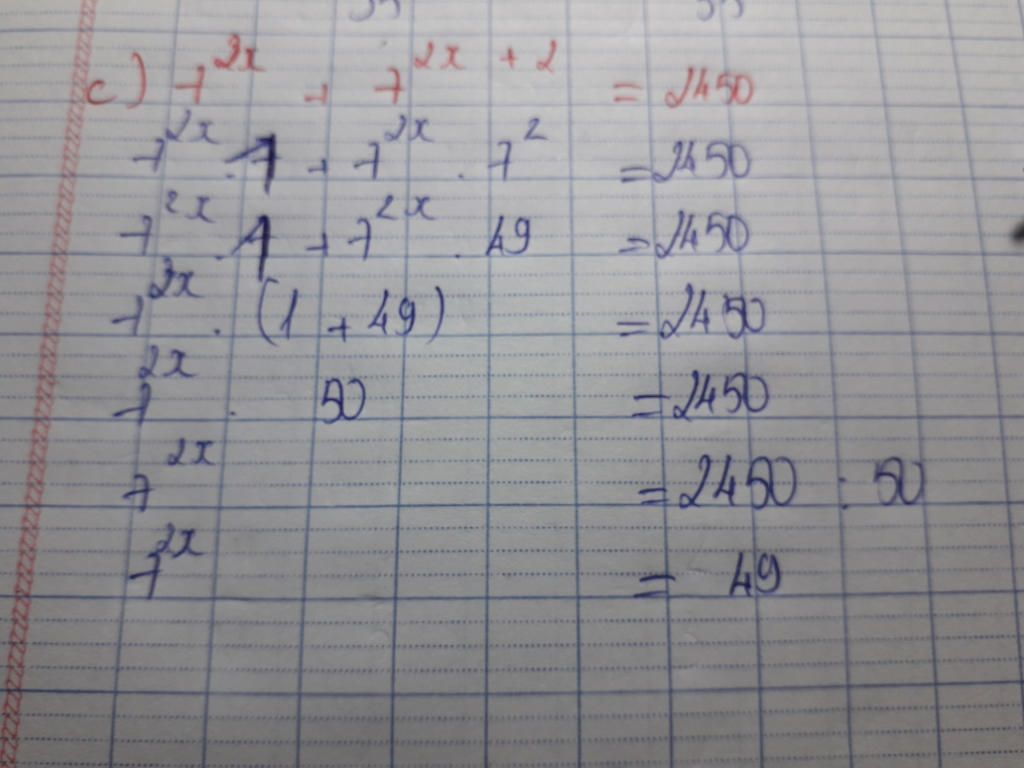 c) 7^{2x} + 7^{2x + 2} = 2450
7^{2x} . 1 + 7^{2x} . 7^2 = 2450
7^{2x} . 1 + 7^{2x} . 49 = 2450
7^{2x} . (1 + 49) = 2450
7^{2x} . 50 = 2450
7^{2x} = 2450 : 50
7^{2x} = 49